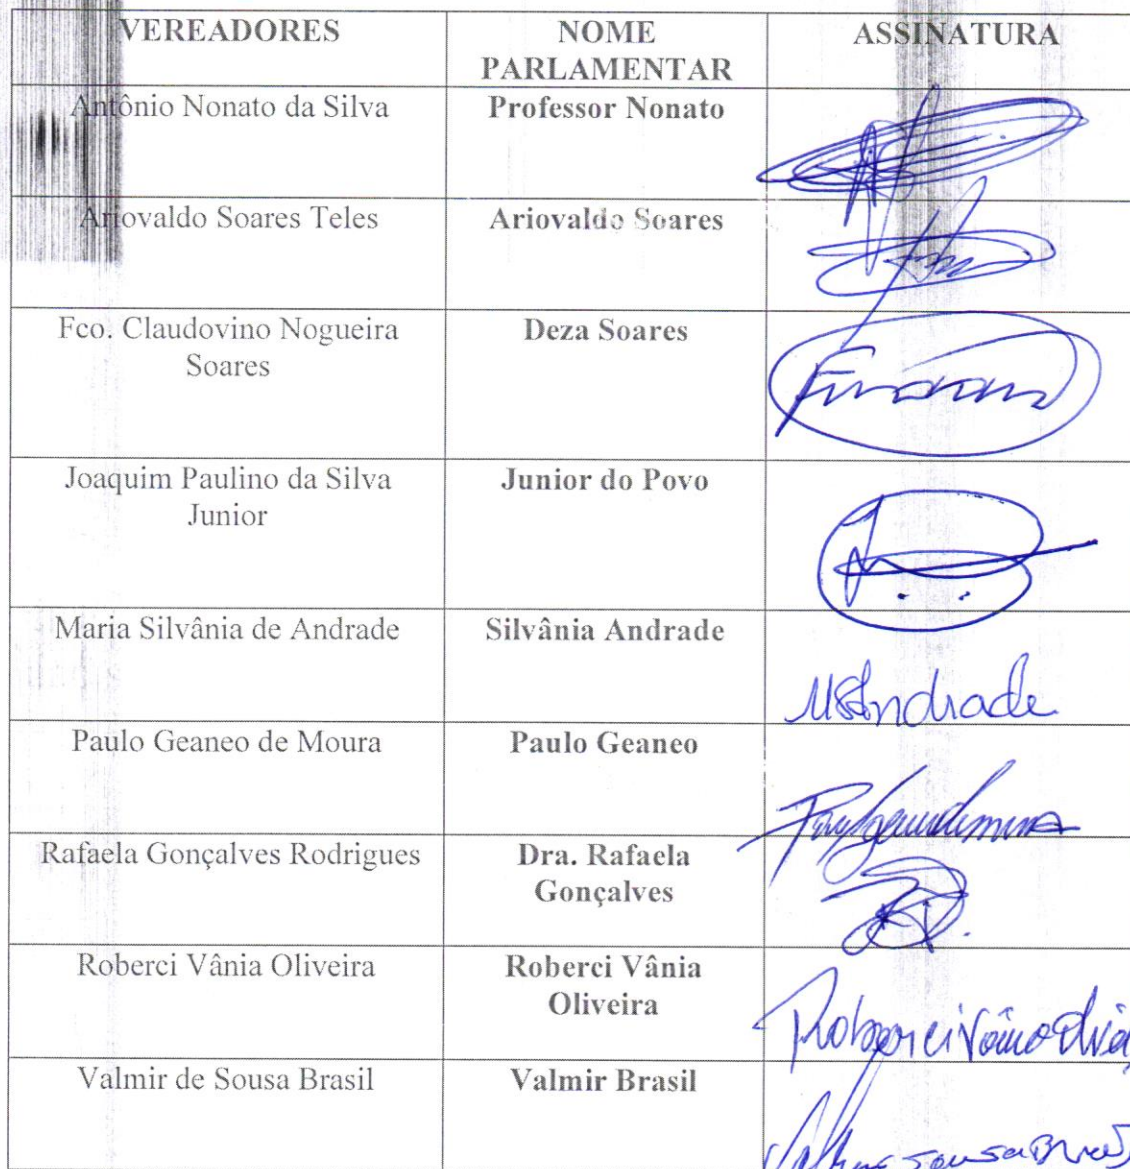 VEREADORES NOME PARLAMENTAR ASSINATURA
Antônio Nonato da Silva Professor Nonato
Ariovaldo Soares Teles Ariovaldo Soares
Fco. Claudovino Nogueira Soares Deza Soares
Joaquim Paulino da Silva Junior Junior do Povo
Maria Silvânia de Andrade Silvânia Andrade MSAndrade
Paulo Geaneo de Moura Paulo Geaneo
Rafaela Gonçalves Rodrigues Dra. Rafaela Gonçalves
Roberci Vânia Oliveira Roberci Vânia Oliveira
Valmir de Sousa Brasil Valmir Brasil